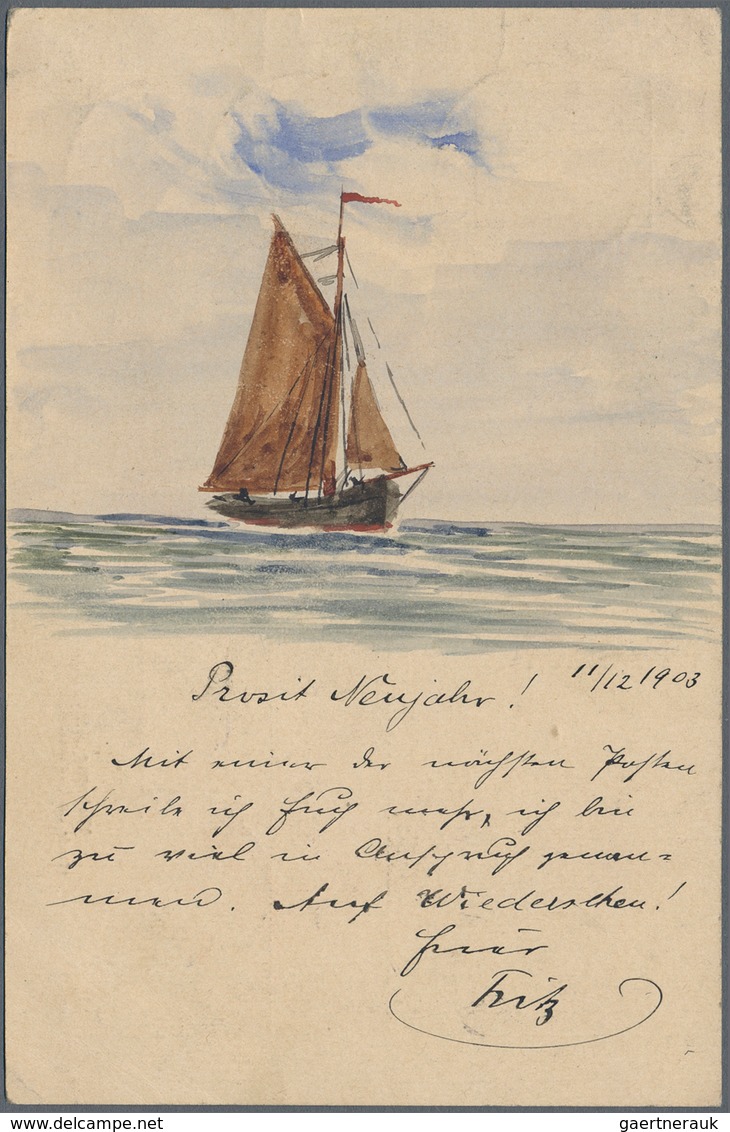 Prosit Neujahr! 11/12 1903
Mit einer der nächsten Posten
schreibe ich Euch mehr, ich bin
zu viel in Anspruch genom=
men. Auf Wiedersehen!
Euer
Fritz
the-saleroom DELCAMPE.net
gaertnerauk